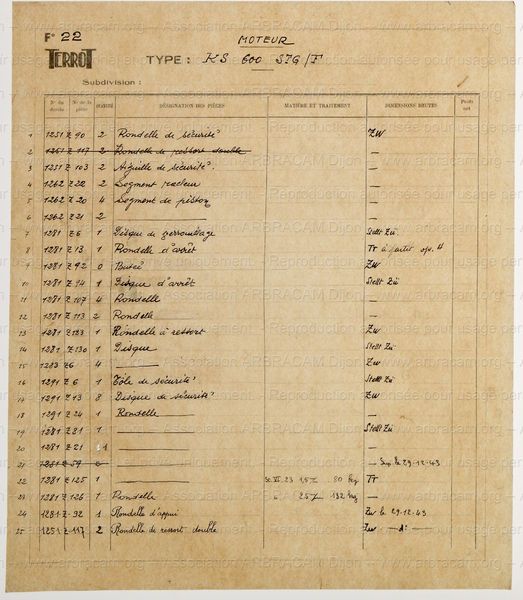 F° 22
MOTEUR
TERROT TYPE : KS 600 STG/F
Subdivision :
N° du dessin N° de la pièce NOMBRE DÉSIGNATION DES PIÈCES MATIÈRE ET TRAITEMENT DIMENSIONS BRUTES Poids net
1 1251 Z 90 2 Rondelle de sécurité ZW
2 1251 Z 117 2 Rondelle de ressort double —
3 1251 Z 103 2 Aiguille de sécurité. —
4 1262 Z 22 2 Segment racleur —
5 1262 Z 20 4 Segment de piston —
6 1262 Z 21 2 —
7 1281 Z 6 1 Disque de verrouillage Stellt Zü
8 1281 Z 13 1 Rondelle d'arrêt Tr à partir
9 1281 Z 92 0 ZW
10 1281 Z 94 1 Disque d'arrêt Stellt Zü
11 1281 Z 107 4 Rondelle —
12 1281 Z 113 2 Rondelle —
13 1281 Z 123 1 Rondelle à ressort ZW
14 1281 Z 130 1 Disque Stellt Zü
15 1283 Z 6 4 — ZW
16 1291 Z 6 1 Tôle de sécurité Stellt Zü
17 1291 Z 13 8 Disque de sécurité ZW
18 1291 Z 24 1 Rondelle —
19 1281 Z 81 1 — Stellt Zü
20 1281 Z 21 1 — —
21 1281 Z 59 — Sup. le 29-12-43
22 1281 Z 125 1 — 80 kg Tr
23 1281 Z 126 1 Rondelle 132 kg —
24 1281 Z 92 1 Rondelle d'appui ZW le 29.12.43
25 1251 Z 117 2 Rondelle de ressort double ZW — d° —